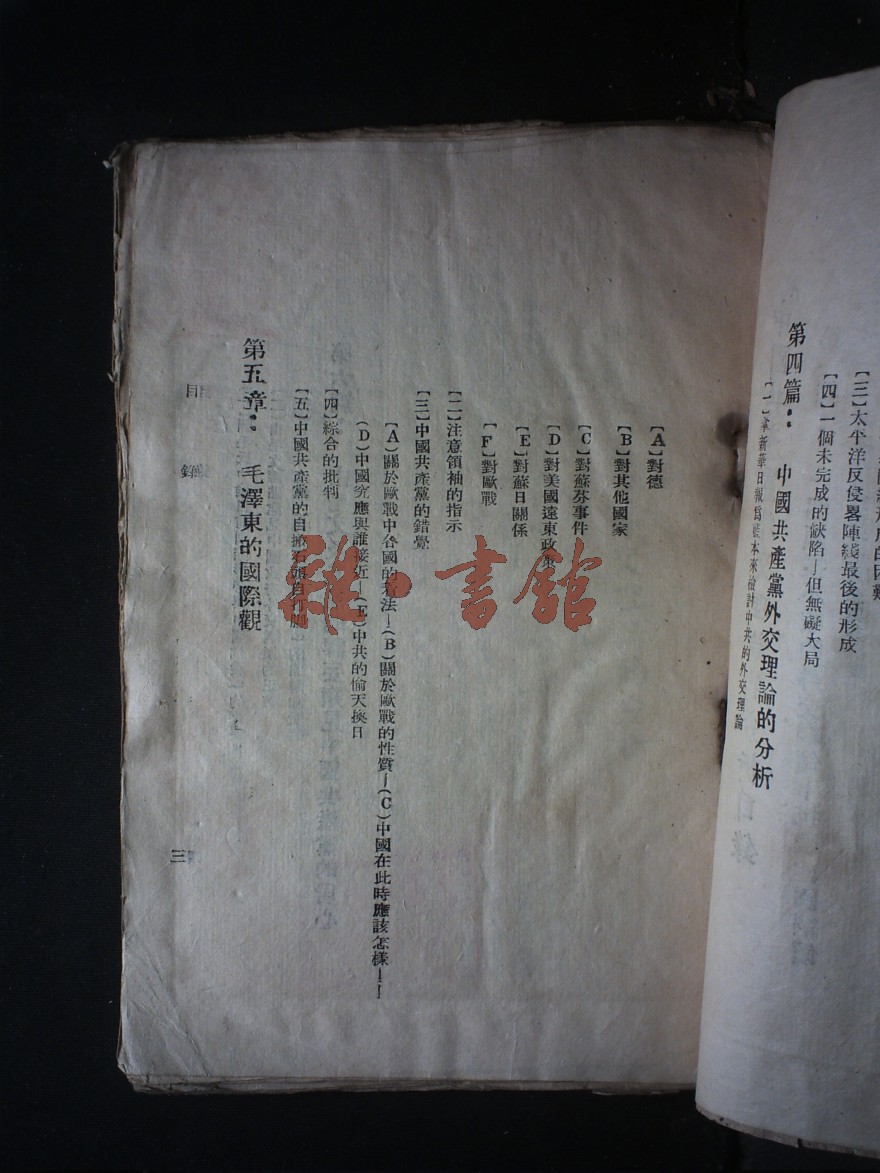 【三】太平洋反侵畧陣綫最後的形成
【四】一個未完成的缺陷—但無礙大局
第四篇：　中國共產黨外交理論的分析
【一】拿新華日報爲藍本來檢討中共的外交理論
【A】對德
【B】對其他國家
【C】對蘇芬事件
【D】對美國遠東政策
【E】對蘇日關係
【F】對歐戰
【二】注意領袖的指示
【三】中國共產黨的錯覺
（A）關於歐戰中各國的看法—（B）關於歐戰的性質—（C）中國在此時應該怎樣—
（D）中國究應與誰接近—（E）中共的偷天換日
【四】綜合的批判
【五】中國共產黨的自搬石頭自
第五章：　毛澤東的國際觀
目　錄
三
雜·書館